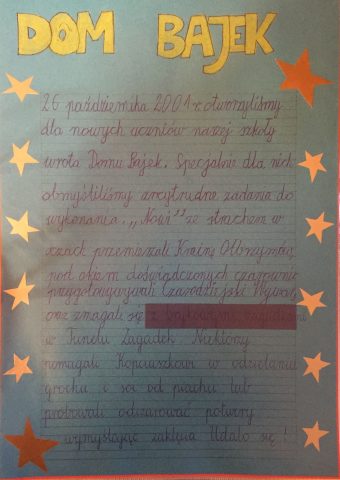 DOM BAJEK
26 października 2001 r. otworzyliśmy
dla nowych uczniów naszej szkoły
wrota Domu Bajek. Specjalnie dla nich
obmyśliliśmy arcytrudne zadania do
wykonania. „Nowi” ze strachem w
oczach przemierzali Krainę Olbrzymów,
pod okiem doświadczonych czarownic
przygotowywali Czarodziejski Wywar,
oraz zmagali się z
w Tunelu Zagadek. Niektórzy
pomagali Kopciuszkowi w oddzielaniu
grochu i soi od piachu lub
próbowali odczarować potwory
wymyślając zaklęcia. Udało się!